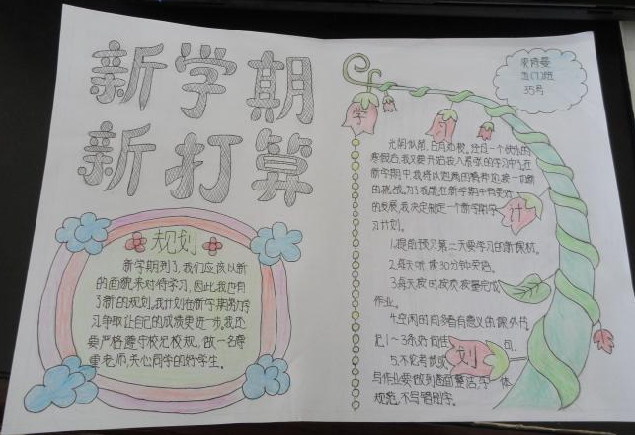 新学期
新打算
规划
新学期到了,我们应该以新
的面貌来对待学习,因此,我也有
了新的规划,我计划在新学期努力学
习,争取让自己的成绩更进一步,我还
要严格遵守校纪校规,做一名尊
重老师,关心同学的好学生。
五(1)班
35号
学
习
计
划
光阴似箭,日月如梭。经过一个快乐的
寒假后,我又要开始投入紧张的学习中,在
新学期中,我将以饱满的精神迎接一切新
的挑战,为了我能在新学期中有更好
的发展,我决定制定一个新学期学
习计划。
1.提前预习第二天要学习的新课程。
2.每天听读30分钟英语。
3.每天按时按质按量完成
作业。
4.空闲时间多看有意义的课外书
5.不论考试或
写作业要做到书面整洁,字体
规范,不写错别字。